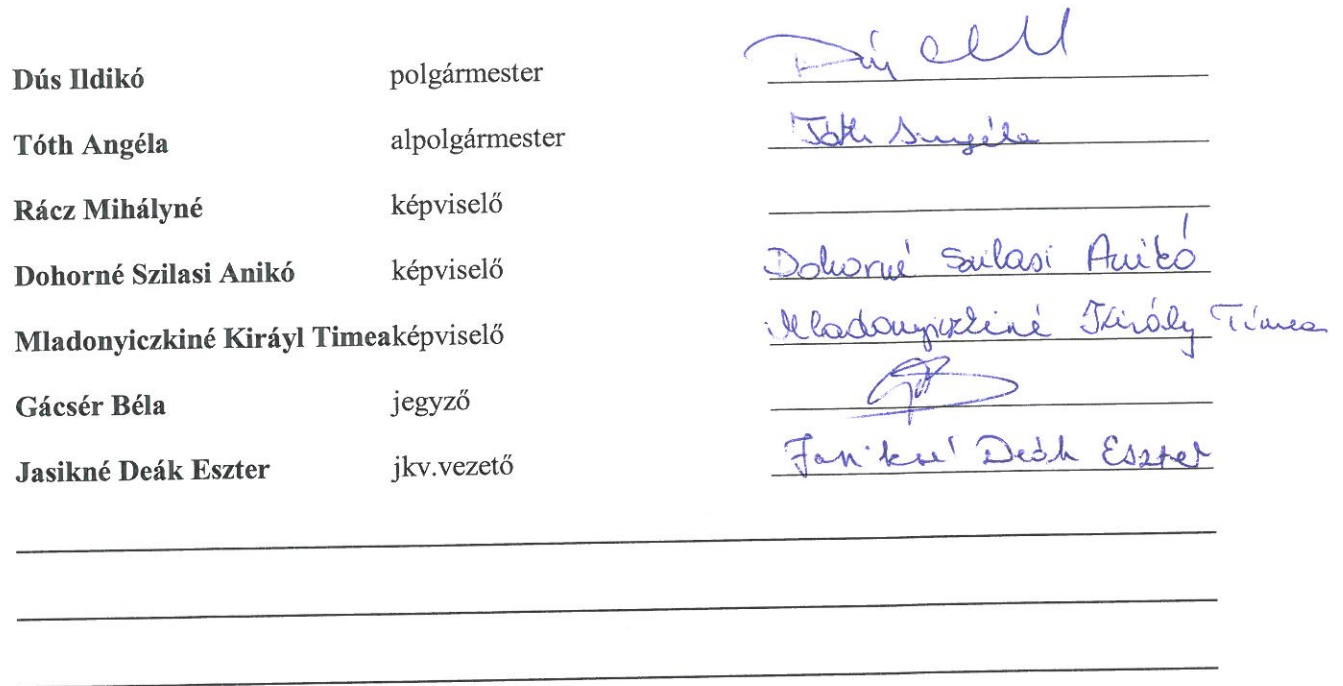 Dús Ildikó polgármester Dús
Tóth Angéla alpolgármester Tóth Angéla
Rácz Mihályné képviselő
Dohorné Szilasi Anikó képviselő Dohorné Szilasi Anikó
Mladonyiczkiné Kiráyl Timeaképviselő Mladonyiczkiné Király Tímea
Gácsér Béla jegyző
Jasikné Deák Eszter jkv.vezető Jasikné Deák Eszter